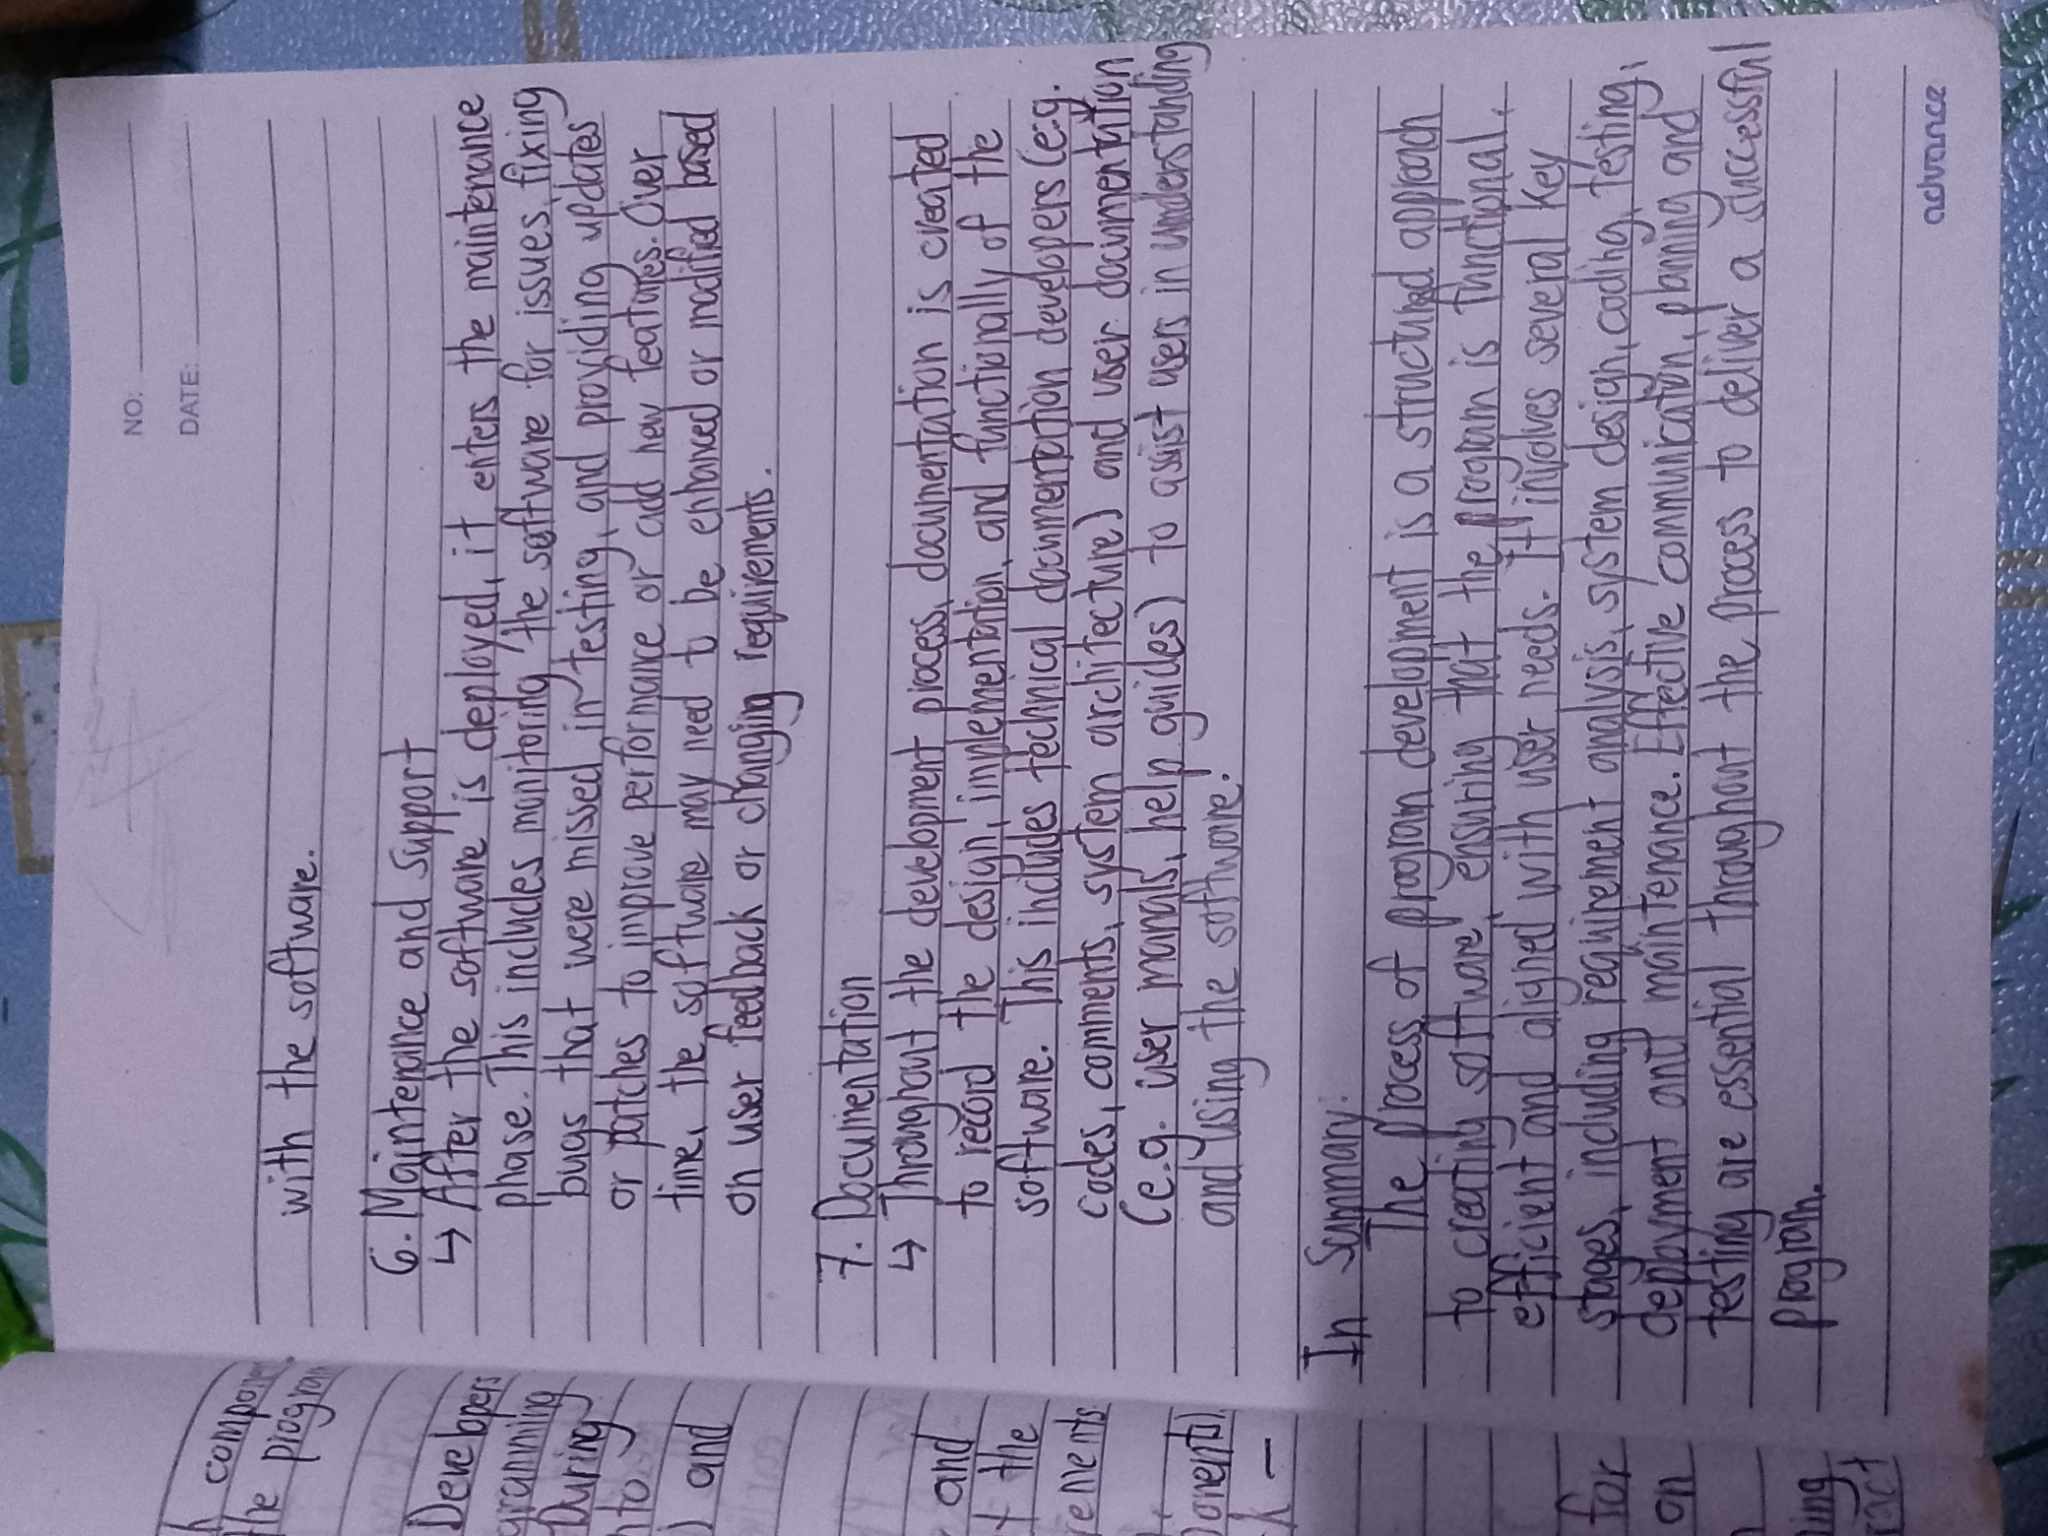 NO:
DATE:
with the software.
6. Maintenance and Support
↳ After the software is deployed, it enters the maintenance
phase. This includes monitoring the software for issues, fixing
bugs that were missed in testing, and providing updates
or patches to improve performance or add new features. Over
time, the software may need to be enhanced or modified based
on user feedback or changing requirements.
7. Documentation
↳ Throughout the development process, documentation is created
to record the design, implementation, and functionally of the
software. This includes technical documentation developers (e.g.
codes, comments, system architecture) and user documentation
(e.g. user manals, help guides) to assist users in understanding
and using the software.
In Summary:
The process of program development is a structured approach
to creating software, ensuring that the program is functional,
efficient and aligned with user needs. It involves several key
stages, including requirement analysis, system design, coding, testing,
deployment and maintenance. Effective communication, planning and
testing are essential throughout the process to deliver a successful
program.
advance
the program
Developers
During
and
and
the
for
on